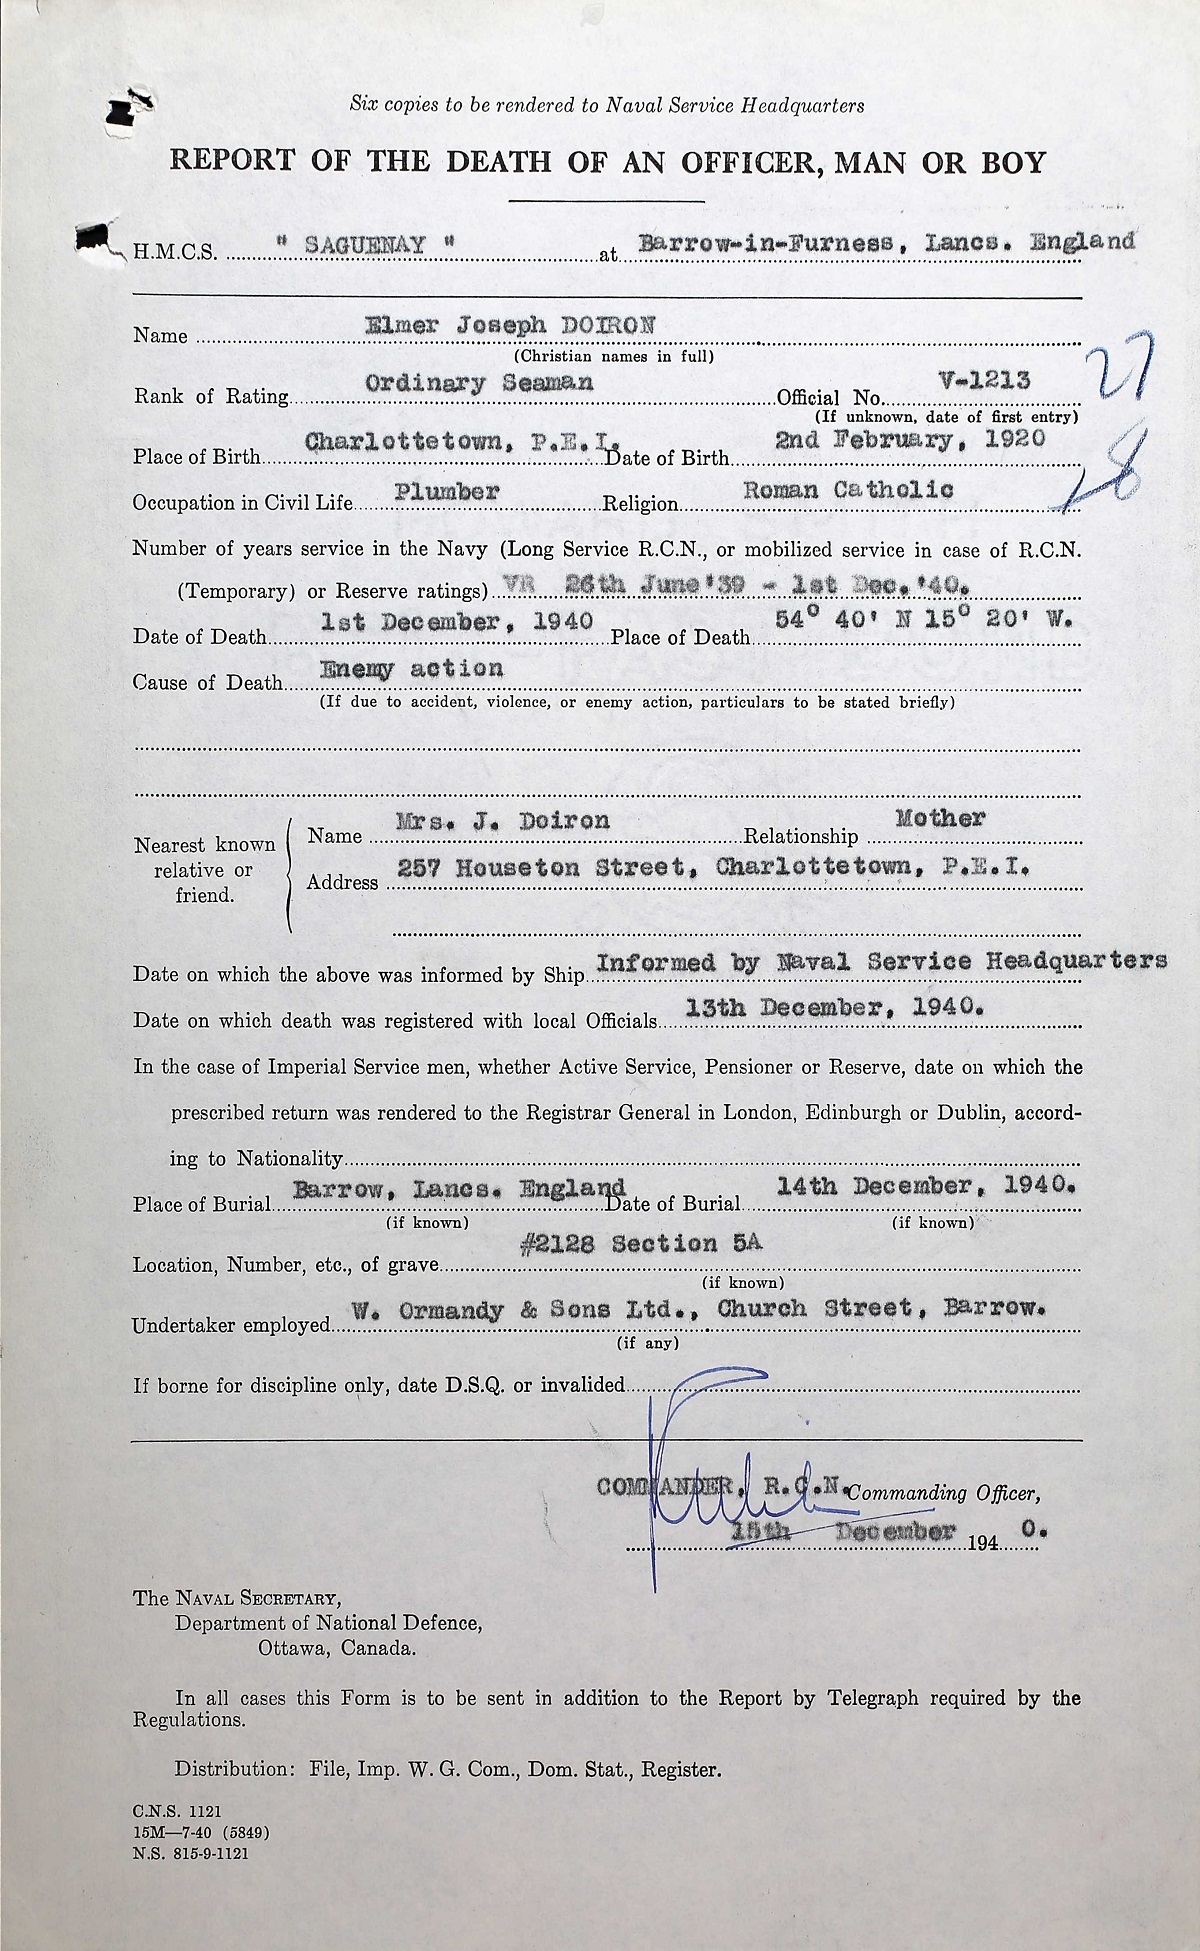 Six copies to be rendered to Naval Service Headquarters
REPORT OF THE DEATH OF AN OFFICER, MAN OR BOY
H.M.C.S. " SAGUENAY " at Barrow-in-Furness, Lancs. England
Name Elmer Joseph DOIRON
(Christian names in full)
27
Rank of Rating Ordinary Seaman Official No. V-1213
(If unknown, date of first entry)
Place of Birth Charlottetown, P.E.I. Date of Birth 2nd February, 1920
28
Occupation in Civil Life Plumber Religion Roman Catholic
Number of years service in the Navy (Long Service R.C.N., or mobilized service in case of R.C.N.
(Temporary) or Reserve ratings) VR 26th June '39 - 1st Dec. '40.
Date of Death 1st December, 1940 Place of Death 54° 40' N 15° 20' W.
Cause of Death Enemy action
(If due to accident, violence, or enemy action, particulars to be stated briefly)
Nearest known relative or friend. Name Mrs. J. Doiron Relationship Mother
Address 257 Houseton Street, Charlottetown, P.E.I.
Date on which the above was informed by Ship Informed by Naval Service Headquarters
Date on which death was registered with local Officials 13th December, 1940.
In the case of Imperial Service men, whether Active Service, Pensioner or Reserve, date on which the
prescribed return was rendered to the Registrar General in London, Edinburgh or Dublin, accord-
ing to Nationality
Place of Burial Barrow, Lancs. England Date of Burial 14th December, 1940.
(if known) (if known)
#2128 Section 5A
Location, Number, etc., of grave
(if known)
Undertaker employed W. Ormandy & Sons Ltd., Church Street, Barrow.
(if any)
If borne for discipline only, date D.S.Q. or invalided
COMMANDER, R.C.N. Commanding Officer,
15th December 1940.
The NAVAL SECRETARY,
Department of National Defence,
Ottawa, Canada.
In all cases this Form is to be sent in addition to the Report by Telegraph required by the
Regulations.
Distribution: File, Imp. W. G. Com., Dom. Stat., Register.
C.N.S. 1121
15M—7-40 (5849)
N.S. 815-9-1121